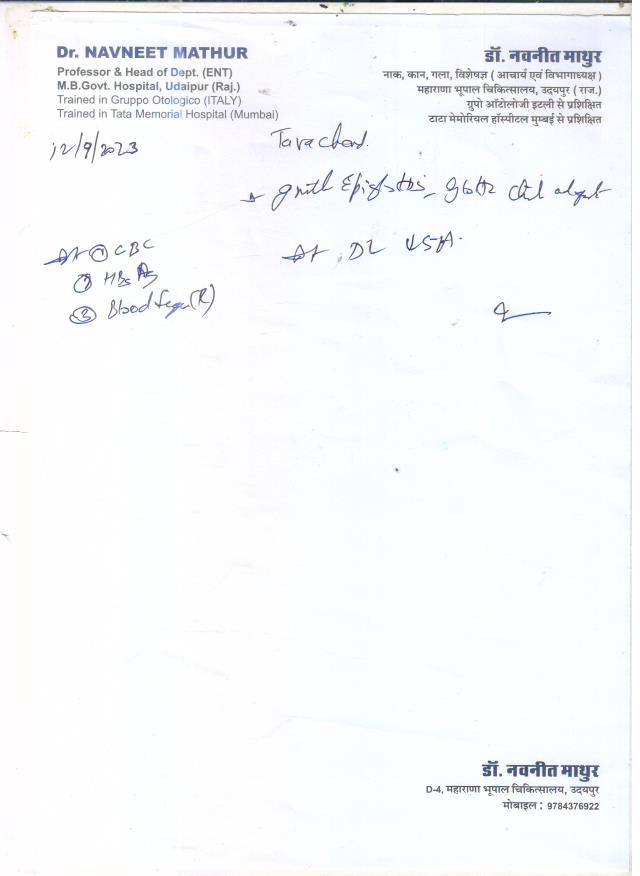 Dr. NAVNEET MATHUR
Professor & Head of Dept. (ENT)
M.B.Govt. Hospital, Udaipur (Raj.)
Trained in Gruppo Otologico (ITALY)
Trained in Tata Memorial Hospital (Mumbai)
डॉ. नवनीत माथुर
नाक, कान, गला, विशेषज्ञ ( आचार्य एवं विभागाध्यक्ष )
महाराणा भूपाल चिकित्सालय, उदयपुर ( राज.)
ग्रुपो ऑटोलोजी इटली से प्रशिक्षित
टाटा मेमोरियल हॉस्पीटल मुम्बई से प्रशिक्षित
12/9/2023
Tarachand.
① CBC
② HBsAg
③ Blood Sugar (R)
DL
डॉ. नवनीत माथुर
D-4, महाराणा भूपाल चिकित्सालय, उदयपुर
मोबाइल : 9784376922